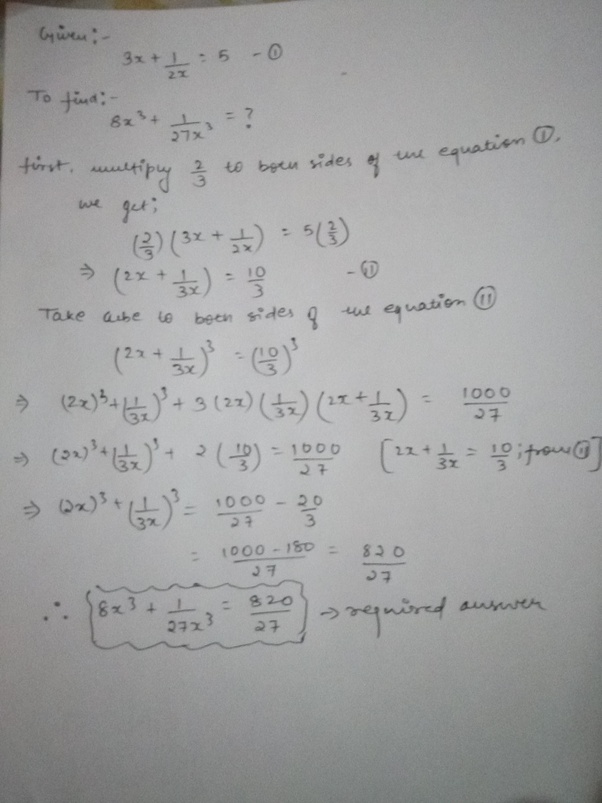 Given:-
3x + 1/2x = 5 - ①
To find:-
8x³ + 1/27x³ = ?
first, multiply 2/3 to both sides of the equation ①,
we get;
(2/3) (3x + 1/2x) = 5(2/3)
⇒ (2x + 1/3x) = 10/3 - ⑪
Take cube to both sides of the equation ⑪
(2x + 1/3x)³ = (10/3)³
⇒ (2x)³ + (1/3x)³ + 3 (2x) (1/3x) (2x + 1/3x) = 1000/27
⇒ (2x)³ + (1/3x)³ + 2 (10/3) = 1000/27 [2x + 1/3x = 10/3; from ⑪]
⇒ (2x)³ + (1/3x)³ = 1000/27 - 20/3
= 1000 - 180/27 = 820/27
∴ 8x³ + 1/27x³ = 820/27 → required answer